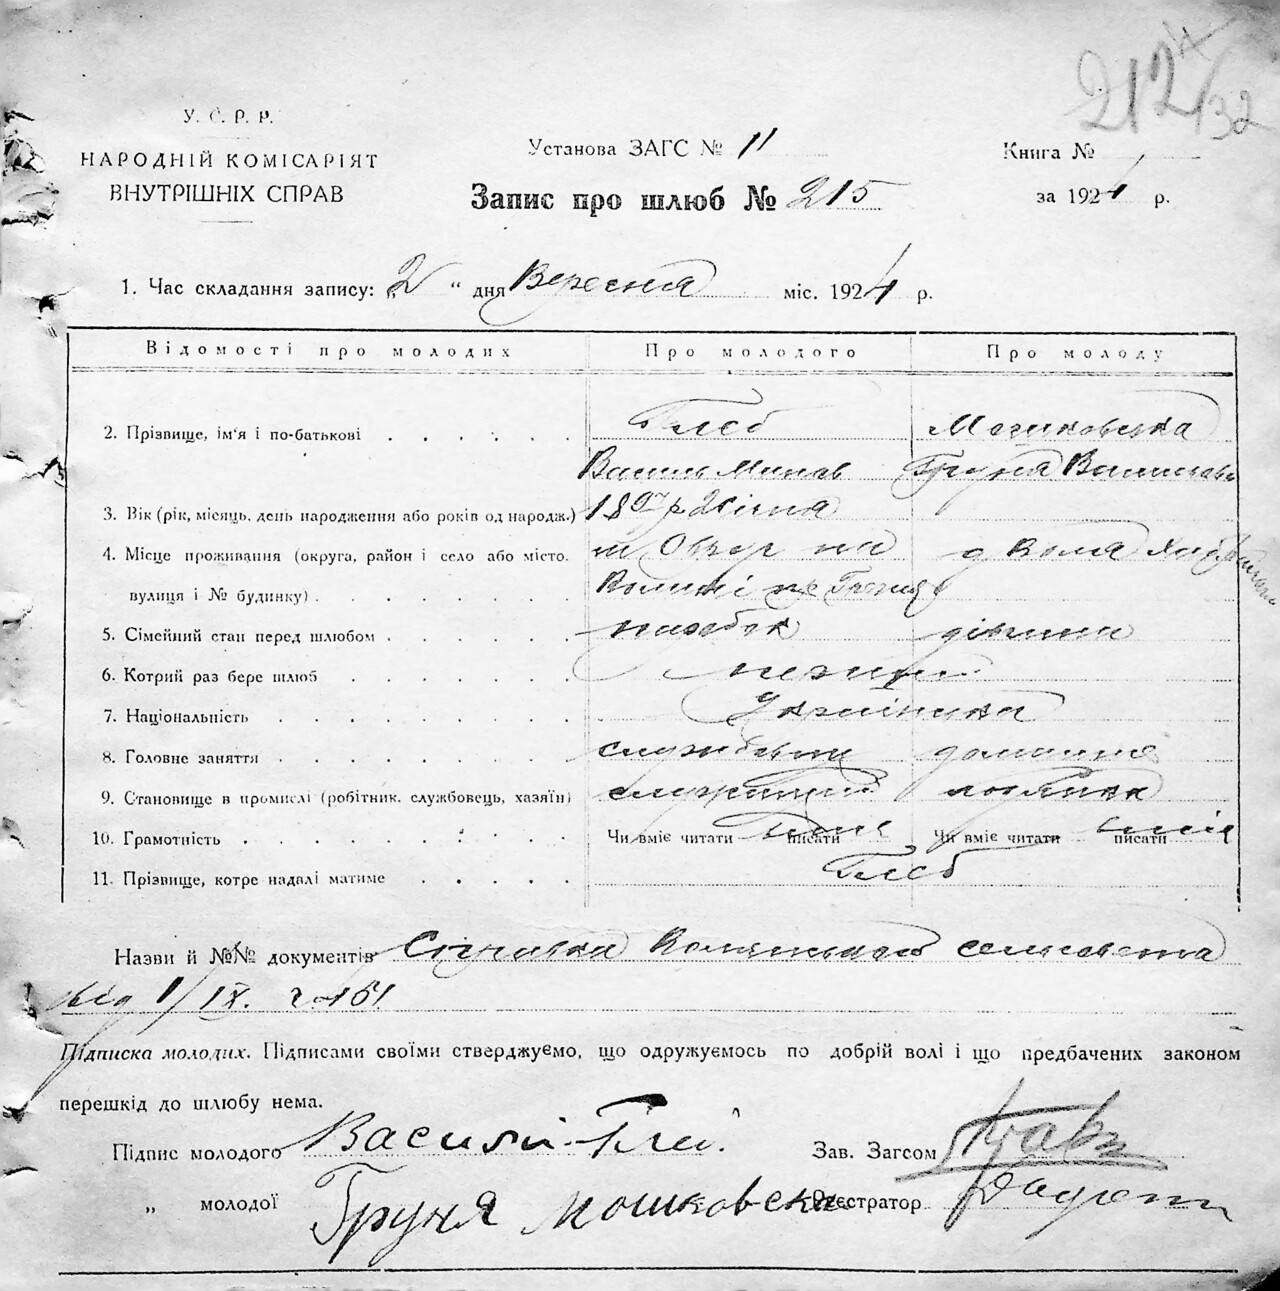 212 132
У. С. Р. Р.
НАРОДНІЙ КОМІСАРІЯТ
ВНУТРІШНІХ СПРАВ
Установа ЗАГС № 11
Книга №
Запис про шлюб № 215
за 1924 р.
1. Час складання запису: „2“ дня Вересня міс. 1924 р.
Відомості про молодих Про молодого Про молоду
2. Прізвище, ім'я і по-батькові . . . . . . Глеб
Василь Груня
3. Вік (рік, місяць, день народження або років од народж.) 1897 р. 2 Січня
4. Місце проживання (округа, район і село або місто, м Овруч на
вулиця і № будинку) . . . . . . . Волині
5. Сімейний стан перед шлюбом . . . . . . парубок дівчина
6. Котрий раз бере шлюб . . . . . . перший
7. Національність . . . . . . . . Українська
8. Головне заняття . . . . . . . . домашнє
9. Становище в промислі (робітник, службовець, хазяїн)
10. Грамотність . . . . . . . . Чи вміє читати писати вміє Чи вміє читати писати вміє
11. Прізвище, котре надалі матиме . . . . . Глеб
Назви й №№ документів сельсовета
від 1/IX.
Підписка молодих. Підписами своїми стверджуємо, що одружуємось по добрій волі і що предбачених законом
перешкід до шлюбу нема.
Підпис молодого Василий Глеб Зав. Загсом
„ молодої Груня Мошковска Реєстратор